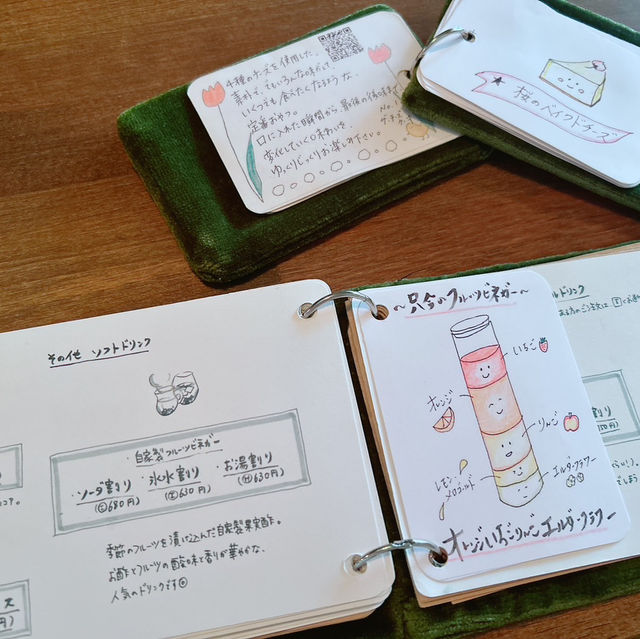 4種のチーズを使用した、
素朴で、
いくつでも食べたくなるような
定番おやつ。
口に入れた瞬間から、最後の後味まで
変化していく味わいを、
ゆっくりじっくりお楽しみ下さい。
桜のベイクドチーズ
その他 ソフトドリンク
自家製フルーツビネガー
・ソーダ割り
・氷水割り
・お湯割り
(Ⓒ680円)
(Ⓒ630円)
(Ⓗ630円)
季節のフルーツを漬け込んだ自家製果実酢。
お酢とフルーツの酸味と香りが華やかな、
人気のドリンクです
〜只今のフルーツビネガー〜
いちご
オレンジ
りんご
レモン
エルダーフラワー
オレンジいちごりんごエルダーフラワー